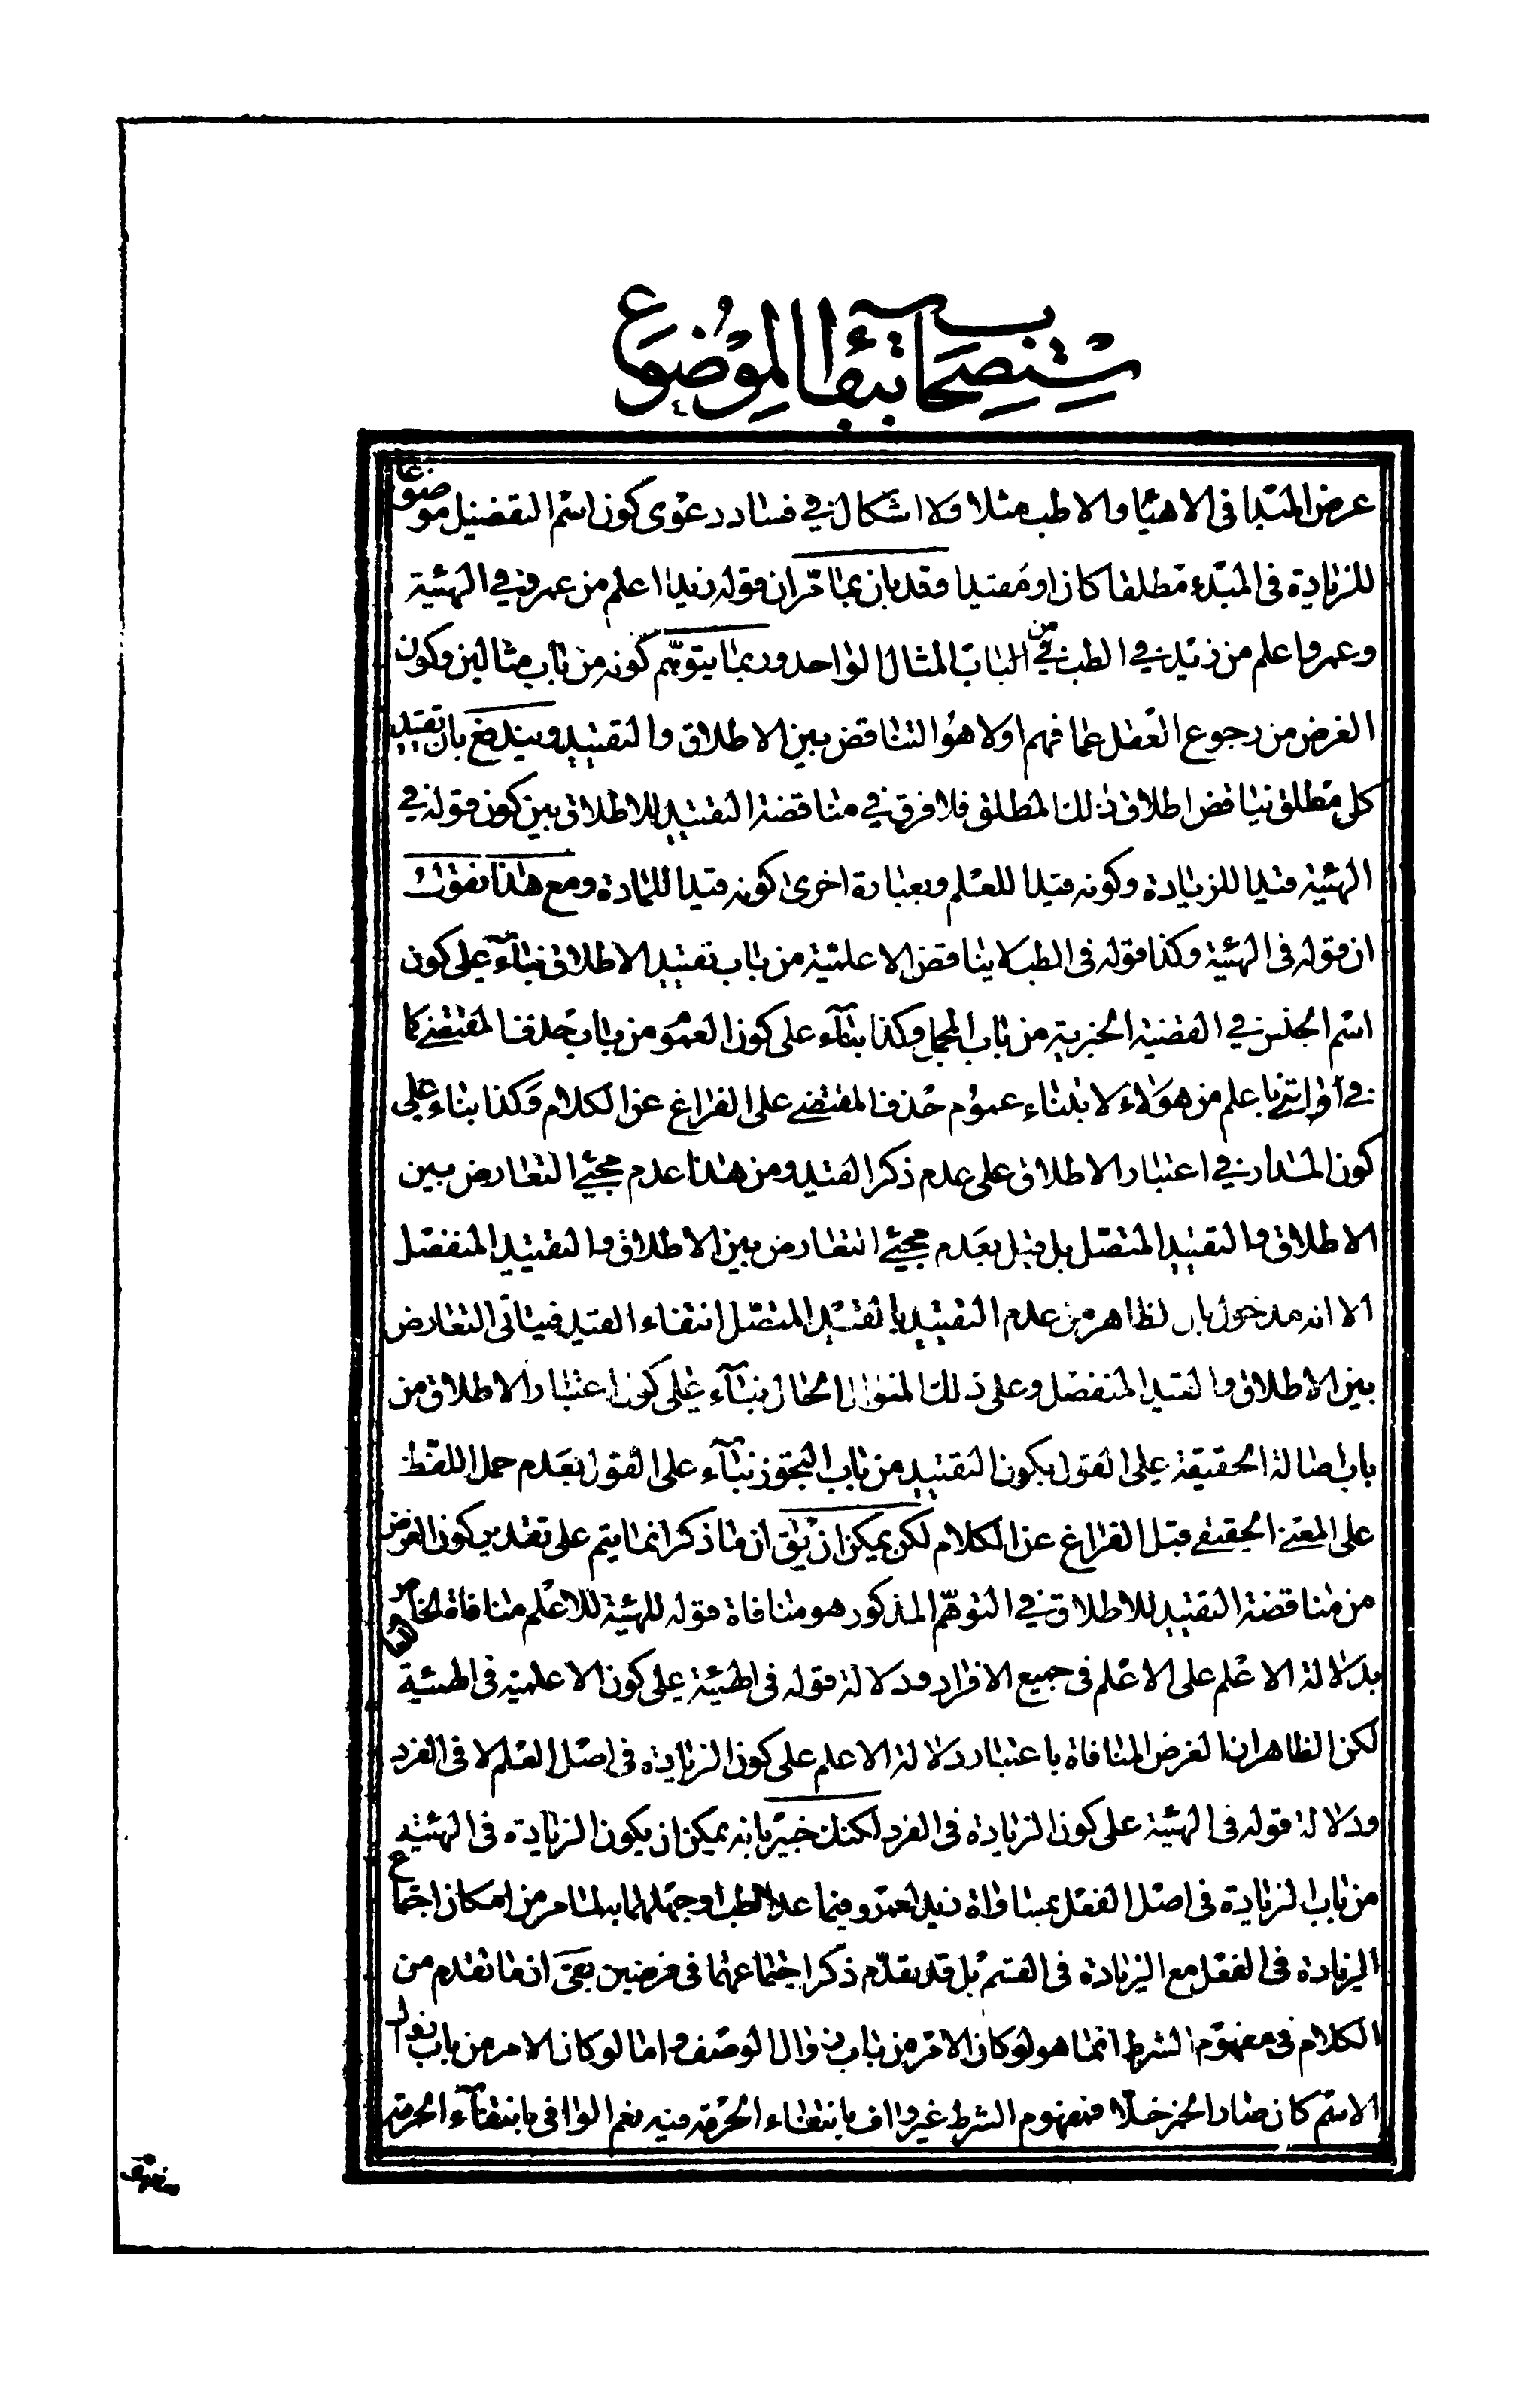 استصحاب بقاء الموضوع
عرض المبتدا فى الاهيا والاطب مثلا ولا اشكال فى فساد دعوى كون اسم التفضيل موضوعا
للزيادة فى المبدء مطلقا كان او مقيدا وقد بان بما مر ان قوله زيد اعلم من عمرو فى الهيئة
وعمرو اعلم من زيد فى الطب من الباب المثال الواحد وربما يتوهم كونه من باب مثالين وكون
الغرض من رجوع العقل عما فهم اولا هو التناقض بين الاطلاق والتقييد ويندفع بان تقييد
كل مطلق يناقض اطلاق ذلك المطلق فلا فرق فى مناقضة التقييد للاطلاق بين كون قوله فى
الهيئة قيدا للزيادة وكونه قيدا للعلم وبعبارة اخرى كونه قيدا للمادة ومع هذا نقول
ان قوله فى الهيئة وكذا قوله فى الطب لا يناقض الاعلمية من باب تقييد الاطلاق بناء على كون
اسم الجنس فى القضية الخبرية من باب المجمل وكذا بناء على كون العموم من باب حذف المقتضى كما
فى باعلم من هؤلاء لابتناء عموم حذف المقتضى على الفراغ عن الكلام وكذا بناء على
كون المدار فى اعتبار الاطلاق على عدم ذكر القيد ومن هذا عدم مجيئ التعارض بين
الاطلاق والتقييد المتصل بل قيل بعدم مجيئ التعارض بين الاطلاق والتقييد المنفصل
الا انه مدخول بان الظاهر من عدم التقييد بالقيد المتصل انتفاء القيد فيتاتى التعارض
بين الاطلاق والقيد المنفصل وعلى ذلك المنوال الحال بناء على كون اعتبار الاطلاق من
باب اصالة الحقيقة على القول بكون التقييد من باب التجوز بناء على القول بعدم حمل اللفظ
على المعنى الحقيقى قبل الفراغ عن الكلام لكن يمكن ان يق ان ما ذكر انما يتم على تقدير كون الغرض
من مناقضة التقييد للاطلاق فى التوهم المذكور هو منافاة قوله للهيئة للاعلم منافاة الخاص للعام
بدلالة الاعلم على الاعلم فى جميع الافراد ودلالة قوله فى الهيئة على كون الاعلمية فى الهيئة
لكن الظاهر ان الغرض المنافاة باعتبار دلالة الاعلم على كون الزيادة فى اصل العلم لا فى الفرد
ودلالة قوله فى الهيئة على كون الزيادة فى الفرد لكنك خبير بانه يمكن ان يكون الزيادة فى الهيئة
من باب الزيادة فى اصل الفعل بمساواة زيد لعمرو فيما عدا الطب او جهلهما به لما مر من امكان اجتماع
الزيادة فى الفعل مع الزيادة فى القسم بل قد تقدم ذكر اجتماعهما فى فرضين بقى ان ما تقدم من
الكلام فى مفهوم الشرط انما هو لو كان الامر من باب زوال الوصف واما لو كان الامر من باب زوال
الاسم كان صار الخمر خلا فمفهوم الشرط غير واف بانتفاء الحرمة فيه نعم الوافى بانتفاء الحرمة